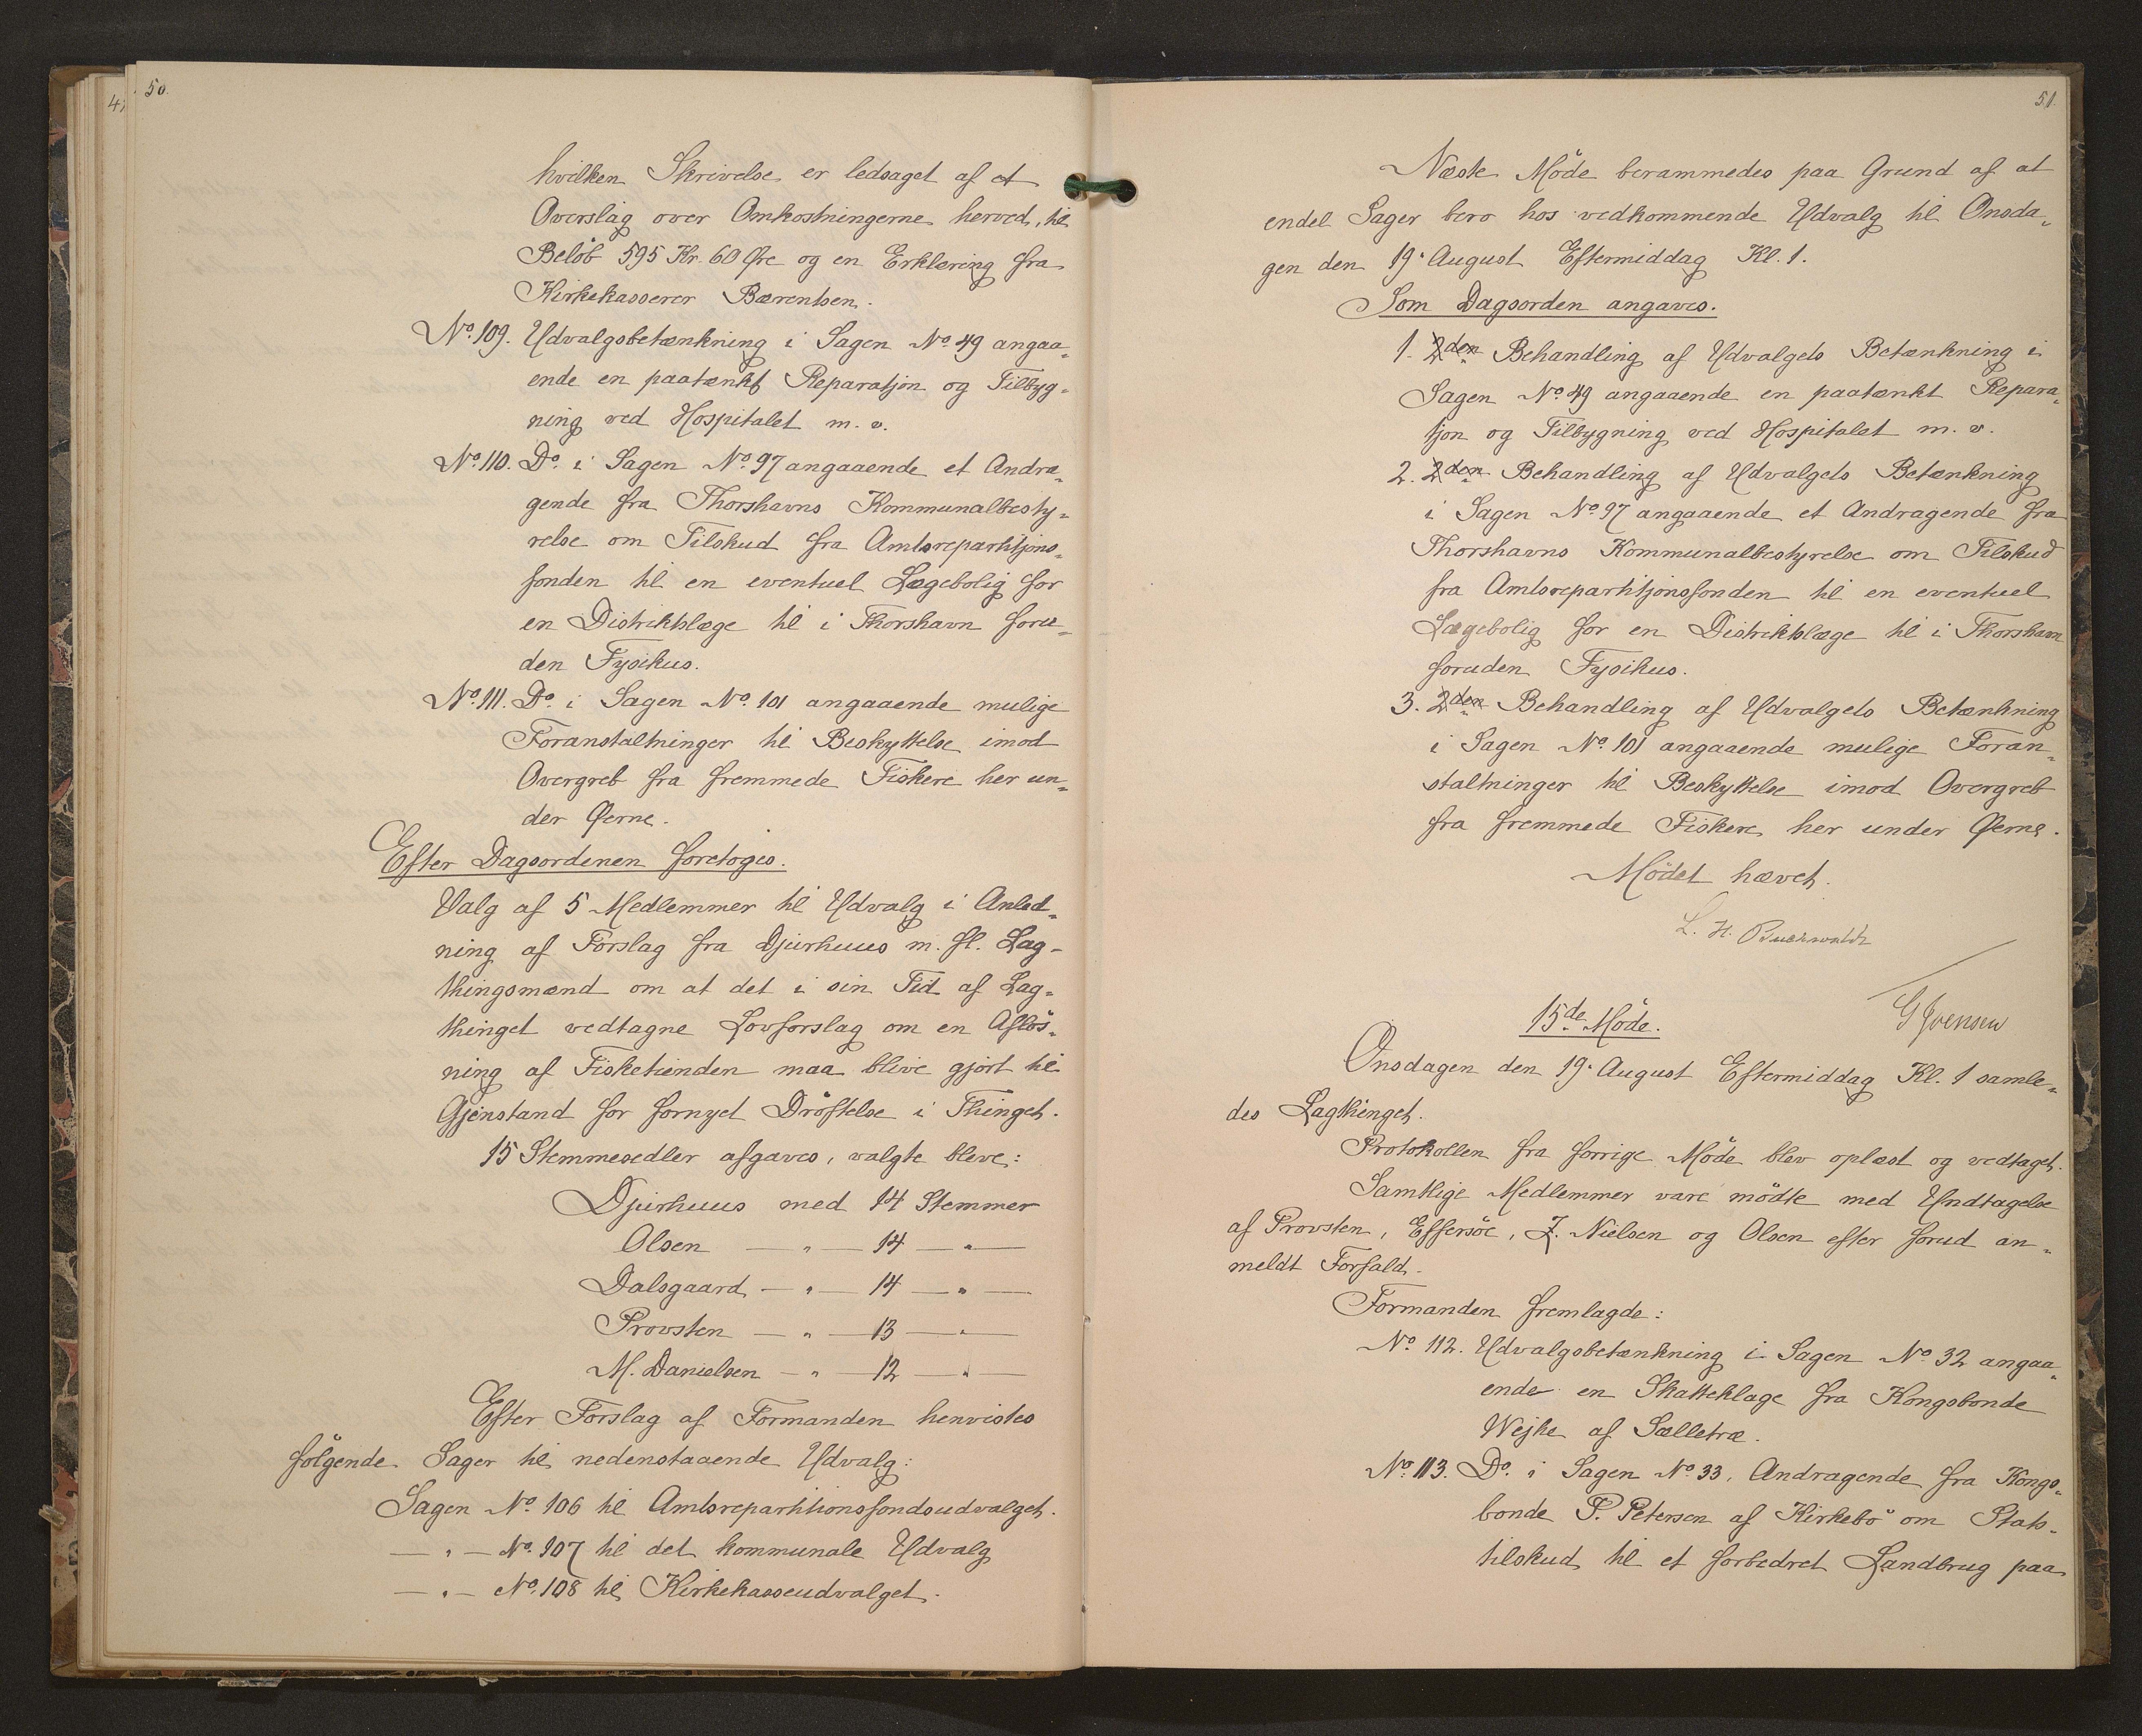 50.
hvilken Skrivelse er ledsaget af et
Overslag over Omkostningerne herved, til
Beløb 595 Kr. 60 Øre og en Erklæring fra
Kirkekasserer Bærentsen.
No. 109. Udvalgsbetænkning i Sagen No. 49 angaa„
ende en paatænkt Reparatjon og Tilbyg„
ning ved Hospitalet m. v.
No. 110. Do. i Sagen No. 97 angaaende et Andra„
gende fra Thorshavns Kommunalbesty„
relse om Tilskud fra Amtsrepartitjons„
fonden til en eventuel Lægebolig for
en Distriktslæge til i Thorshavn foru„
den Fysikus.
No. 111. Do. i Sagen No. 101 angaaende mulige
Foranstaltninger til Beskyttelse imod
Overgreb fra fremmede Fiskere her un„
der Øerne.
Efter Dagsordenen foretoges.
Valg af 5 Medlemmer til Udvalg i Anled„
ning af Forslag fra Djurhuus m. fl. Lag-
thingsmænd om at det i sin Tid af Lag„
thinget vedtagne Lovforslag om en Afløs„
ning af Fisketienden maa blive gjort til
Gjenstand for fornyet Drøftelse i Thinget.
15 Stemmesedler afgaves, valgte bleve:
Djurhuus med 14 Stemmer
Olsen — „ — 14 — „ —
Dalsgaard — „ — 14 — „ —
Provsten — „ — 13 — „ —
M. Danielsen — „ — 12 — „ —
Efter Forslag af Formanden henvistes
følgende Sager til nedenstaaende Udvalg:
Sagen No. 106 til Amtsrepartitionsfondsudvalget.
— „ — No. 107 til det kommunale Udvalg
— „ — No. 108 til Kirkekasseudvalget.
51.
Næste Møde berammedes paa Grund af at
endel Sager bero hos vedkommende Udvalg til Onsda„
gen den 19. August Eftermiddag Kl. 1.
Som Dagsorden angaves.
1. 2den Behandling af Udvalgets Betænkning i
Sagen No. 49 angaaende en paatænkt Repara„
tjon og Tilbygning ved Hospitalet m. v.
2. 2den Behandling af Udvalgets Betænkning
i Sagen No. 97 angaaende et Andragende fra
Thorshavns Kommunalbestyrelse om Tilskud
fra Amtsrepartitjonsfonden til en eventuel
Lægebolig for en Distriktslæge til i Thorshavn
foruden Fysikus.
3. 2den Behandling af Udvalgets Betænkning
i Sagen No. 101 angaaende mulige Foran„
staltninger til Beskyttelse imod Overgreb
fra fremmede Fiskere her under Øerne.
Mødet hævet.
L. H. Buchwaldt
15de Møde.
Onsdagen den 19. August Eftermiddag Kl. 1 samle„
des Lagthinget.
Protokollen fra forrige Møde blev oplæst og vedtaget.
Samtlige Medlemmer vare mødte med Undtagelse
af Provsten, Effersøe, J. Nielsen og Olsen efter forud an„
meldt Forfald.
Formanden fremlagde:
No. 112. Udvalgsbetænkning i Sagen No. 32 angaa„
ende en Skatteklage fra Kongsbonde
Wejhe af Sælletræ.
No. 113. Do. i Sagen No. 33, Andragende fra Kongs„
bonde P. Petersen af Kirkebø om Stats„
tilskud til et forbedret Landbrug paa